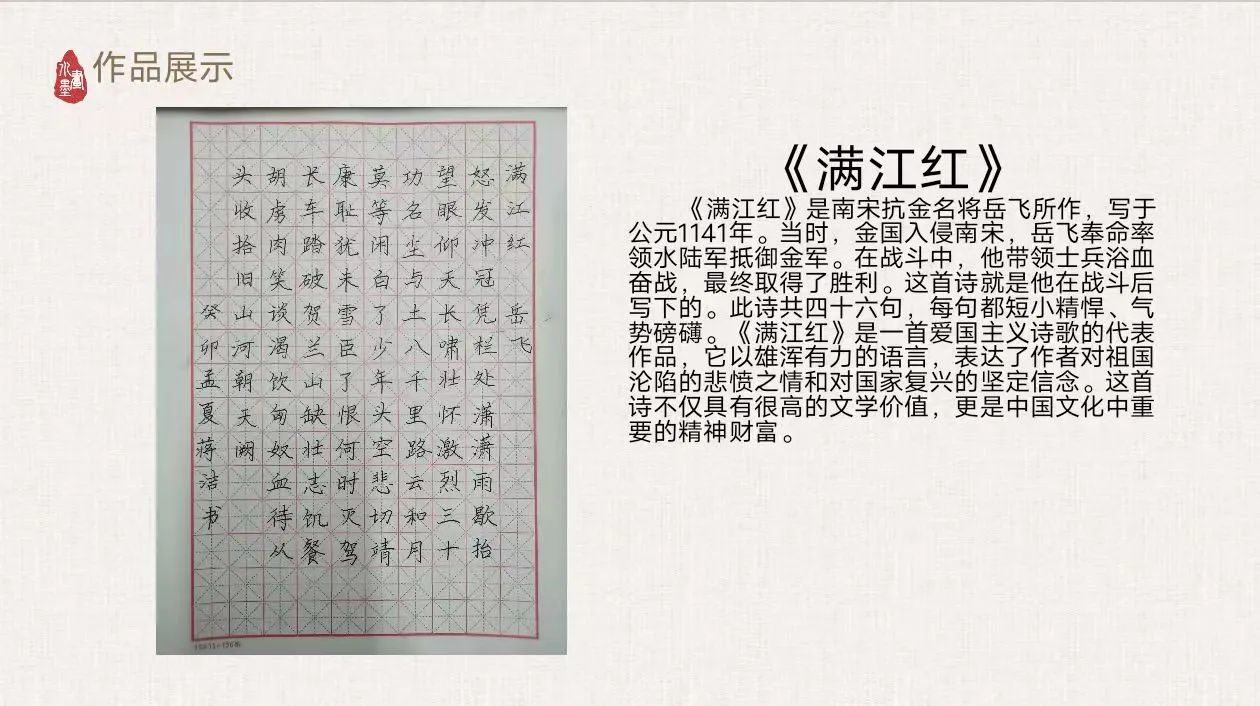 水墨画
作品展示
满江红 岳飞
怒发冲冠凭栏处潇潇雨歇抬
望眼仰天长啸壮怀激烈三十
功名尘与土八千里路云和月
莫等闲白了少年头空悲切靖
康耻犹未雪臣了恨何时灭驾
长车踏破贺兰山缺壮志饥餐
胡虏肉笑谈渴饮匈奴血待从
头收拾旧山河朝天阙
癸卯孟夏蒋洁书
《满江红》
《满江红》是南宋抗金名将岳飞所作，写于
公元1141年。当时，金国入侵南宋，岳飞奉命率
领水陆军抵御金军。在战斗中，他带领士兵浴血
奋战，最终取得了胜利。这首诗就是他在战斗后
写下的。此诗共四十六句，每句都短小精悍、气
势磅礴。《满江红》是一首爱国主义诗歌的代表
作品，它以雄浑有力的语言，表达了作者对祖国
沦陷的悲愤之情和对国家复兴的坚定信念。这首
诗不仅具有很高的文学价值，更是中国文化中重
要的精神财富。